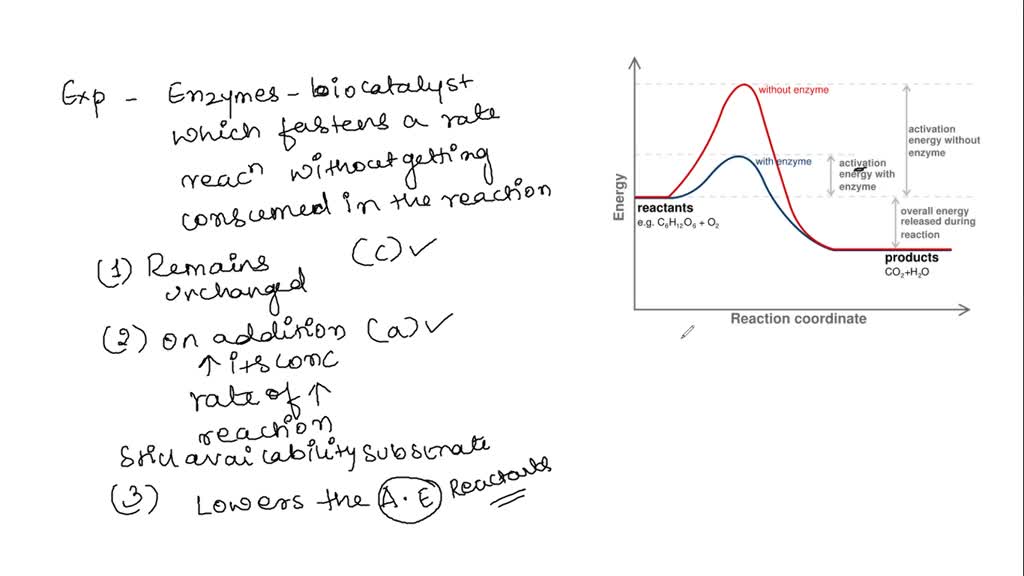 Exp - Enzymes - biocatalyst
which fastens a rate
reacⁿ without getting
consumed in the reaction
(1) Remains (c) ✓
unchanged
(2) on addition (a) ✓
↑ its conc
rate of ↑
reaction
Still availability substrate
(3) Lowers the A.E Reactants
without enzyme
with enzyme
activation
energy without
enzyme
activation
energy with
enzyme
Energy
reactants
e.g. C₆H₁₂O₆ + O₂
overall energy
released during
reaction
products
CO₂+H₂O
Reaction coordinate